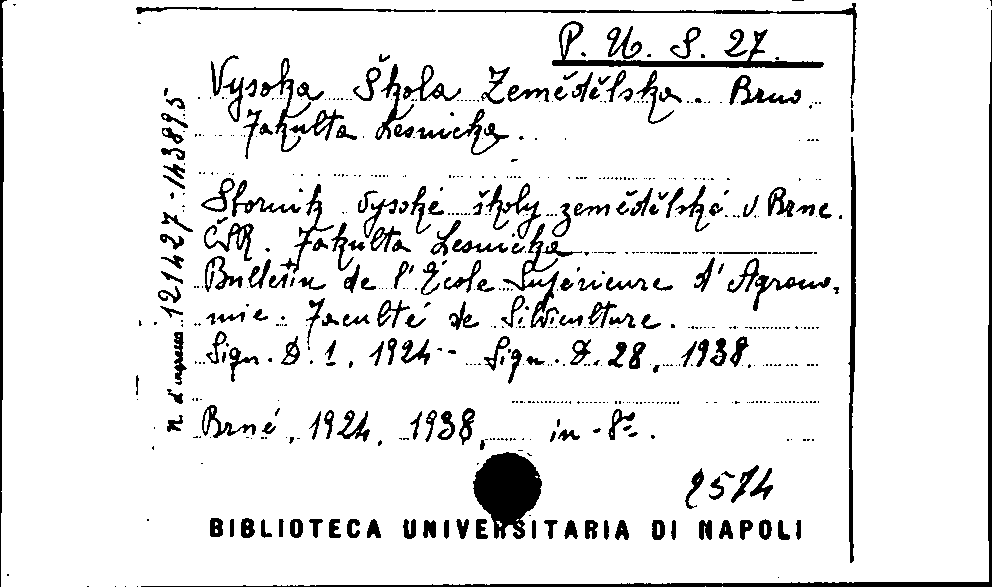 P. U. S. 27.
Vysoka Škola Zemědělska. Brno.
Fakulta Lesnicka.
Sbornik Vysoké školy zemědělské v Brne.
ČSR. Fakulta Lesnicka.
Bulletin de l'École Supérieure d'Agrono-
mie. Faculté de Silviculture.
Sign. D. 1, 1924 - Sign. D. 28, 1938.
Brné, 1924, 1938, in-8º.
2574
n. d'ingresso 121427-143895
BIBLIOTECA UNIVERSITARIA DI NAPOLI